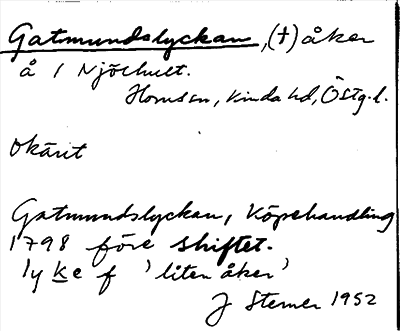 Gatmundslyckan, (†) åker
å 1 Njöshult.
Hornsen, Kinda hd, Östg.l.
Okänt
Gatmundslyckan, Köpehandling
1798 före skiftet.
lycke f 'liten åker'
J Sterner 1952